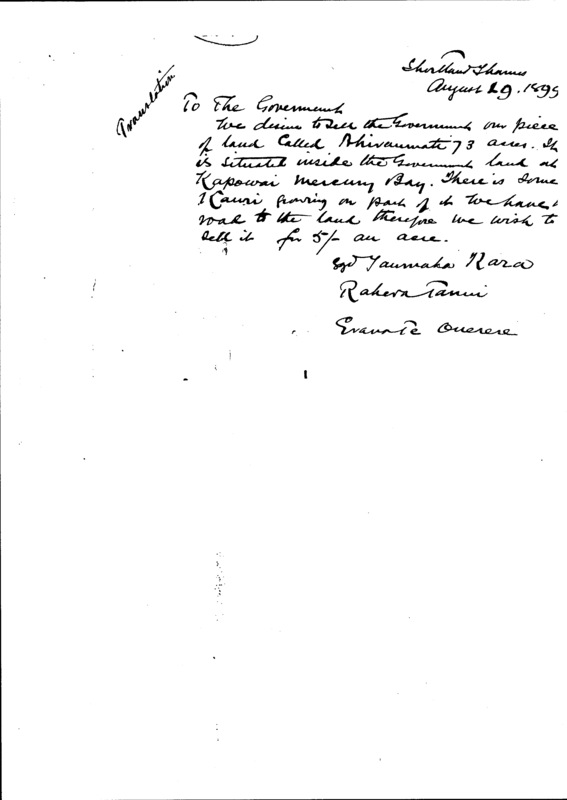 Translation
Shortland Thames
August 29. 1895
To The Government
We desire to sell the Government our piece
of land called 73 acres. It
is situated inside the Government land at
Kapowai Mercury Bay. There is some
Kauri growing on part of it We have
road to the land therefore we wish to
sell it for 5/- an acre.
Sgd Taumaha Kara
Rahera Tanui
Te